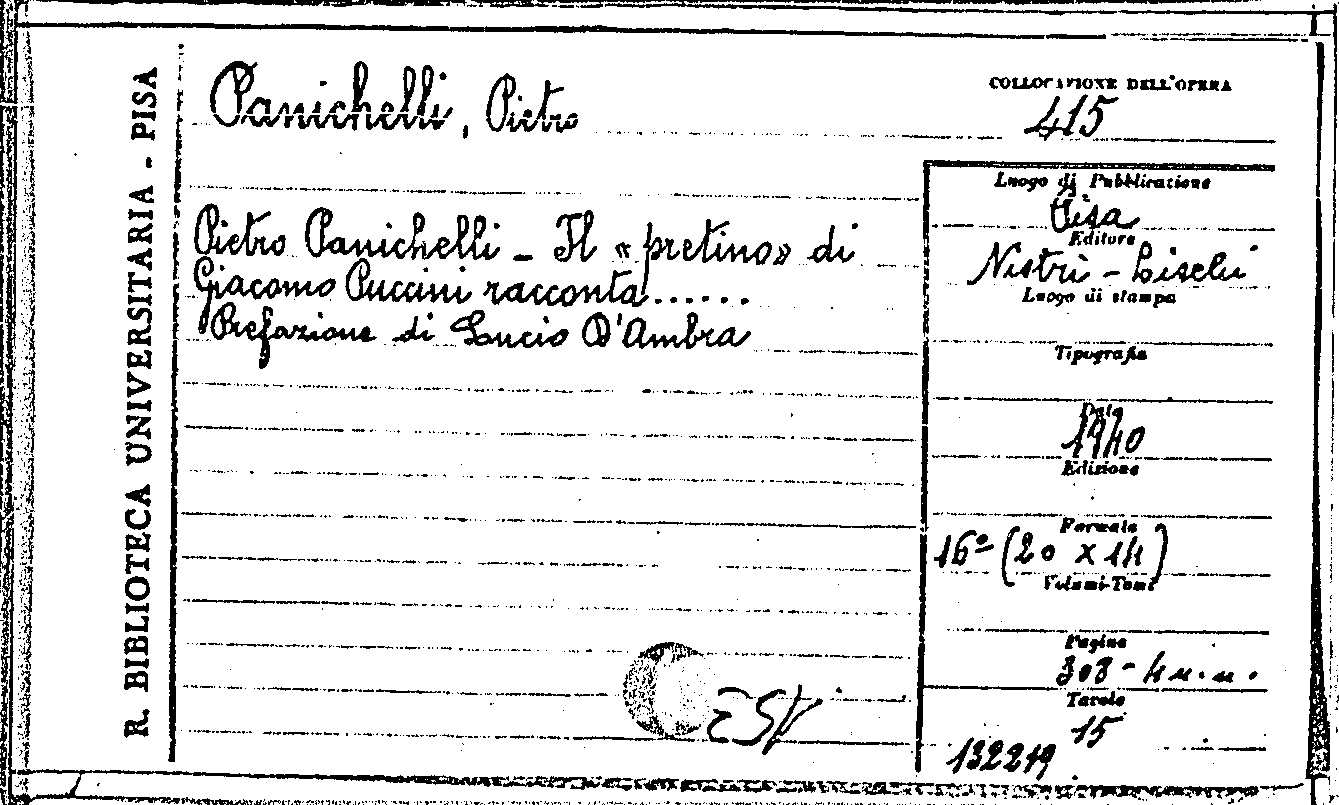 R. BIBLIOTECA UNIVERSITARIA - PISA
Panichelli, Pietro
COLLOCAZIONE DELL'OPERA
415
Pietro Panichelli - Il «pretino» di
Giacomo Puccini racconta......
Prefazione di Lucio D'Ambra
Luogo di Pubblicazione
Pisa
Editore
Nistri - Lischi
Luogo di stampa
Tipografia
Data
1940
Edizione
Formato
16º (20 x 14)
Volumi-Tomi
Pagine
303 - 4 n.n.
Tavole
15
132219